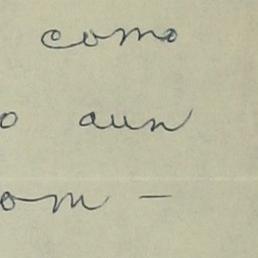 como
o aun
om -